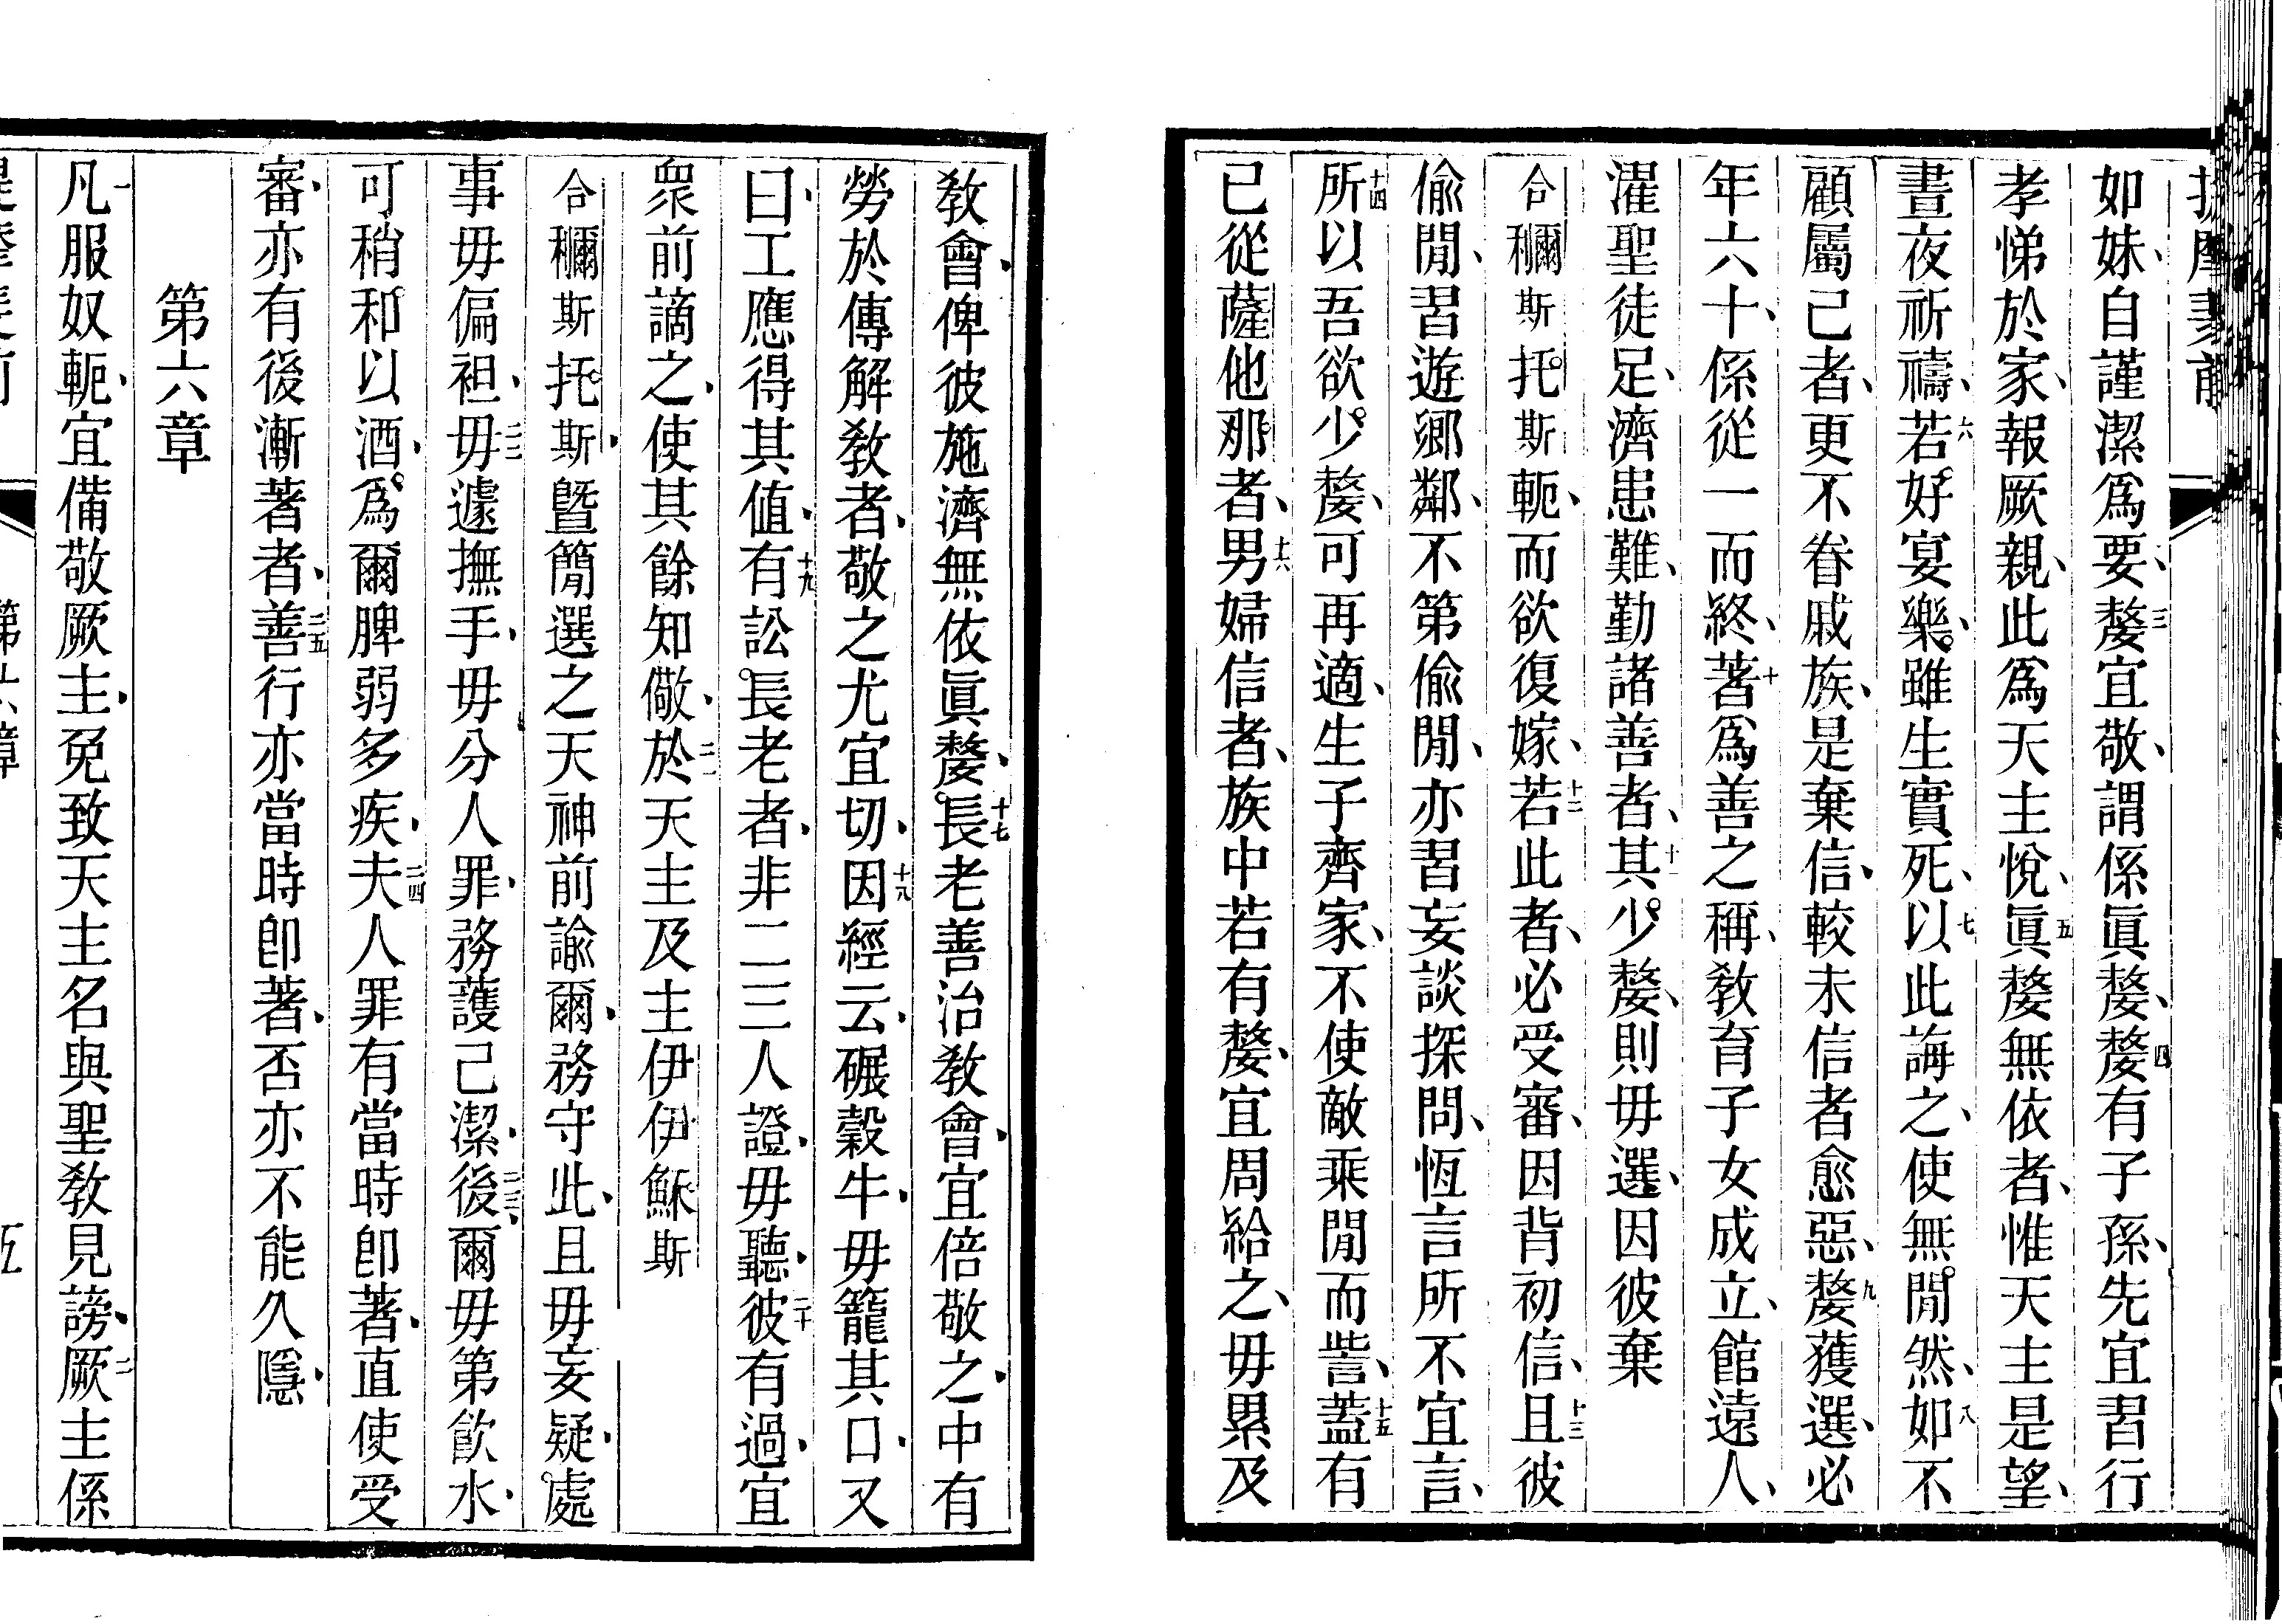 如妹、自謹潔爲要、三嫠宜敬、謂係眞嫠、四嫠有子孫、先宜習行
孝悌於家、報厥親、此爲天主悅、五眞嫠無依者、惟天主是望、
晝夜祈禱、六若好宴樂。雖生實死、七以此誨之、使無閒然、八如不
顧屬己者、更不眷戚族、是棄信、較未信者愈惡、九嫠獲選、必
年六十、係從一而終、十著爲善之稱、教育子女成立、館遠人、
濯聖徒足、濟患難、勤諸善者、十一其少嫠、則毋選、因彼棄
合穪斯托斯軛、而欲復嫁、十二若此者、必受審、因背初信、十三且彼
偸閒、習遊鄉鄰、不第偸閒、亦習妄談探問、恆言所不宜言、
十四所以吾欲少嫠、可再適、生子齊家、不使敵乘閒而訾、十五蓋有
已從薩他那者、十六男婦信者、族中若有嫠、宜周給之、毋累及
教會、俾彼施濟無依眞嫠。十七長老善治教會、宜倍敬之、中有
勞於傳解教者、敬之尤宜切、十八因經云、碾穀牛、毋籠其口、又
曰、工應得其値、十九有訟長老者、非二三人證、毋聽、二十彼有過、宜
衆前謫之、使其餘知儆、二一於天主及主伊伊穌斯
合穪斯托斯、曁簡選之天神前諭爾、務守此、且毋妄疑、處
事毋偏袒、二二毋遽撫手、毋分人罪、務護己潔、二三後爾毋第飮水、
可稍和以酒、爲爾脾弱多疾、二四夫人罪有當時卽著、直使受
審、亦有後漸著者、二五善行亦當時卽著、否亦不能久隱、
第六章
一凡服奴軛、宜備敬厥主、免致天主名與聖教見謗、二厥主係